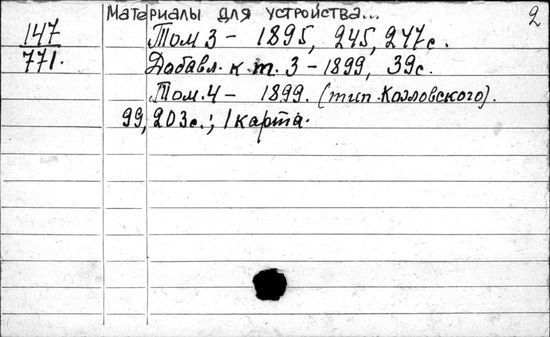 Материалы для устройства...
2
147
Том 3 - 1895, 245, 247с.
771.
Добавл. к т. 3 - 1899, 39с.
Том. 4 - 1899. (тип. Козловского).
99, 203с.; 1 карта.